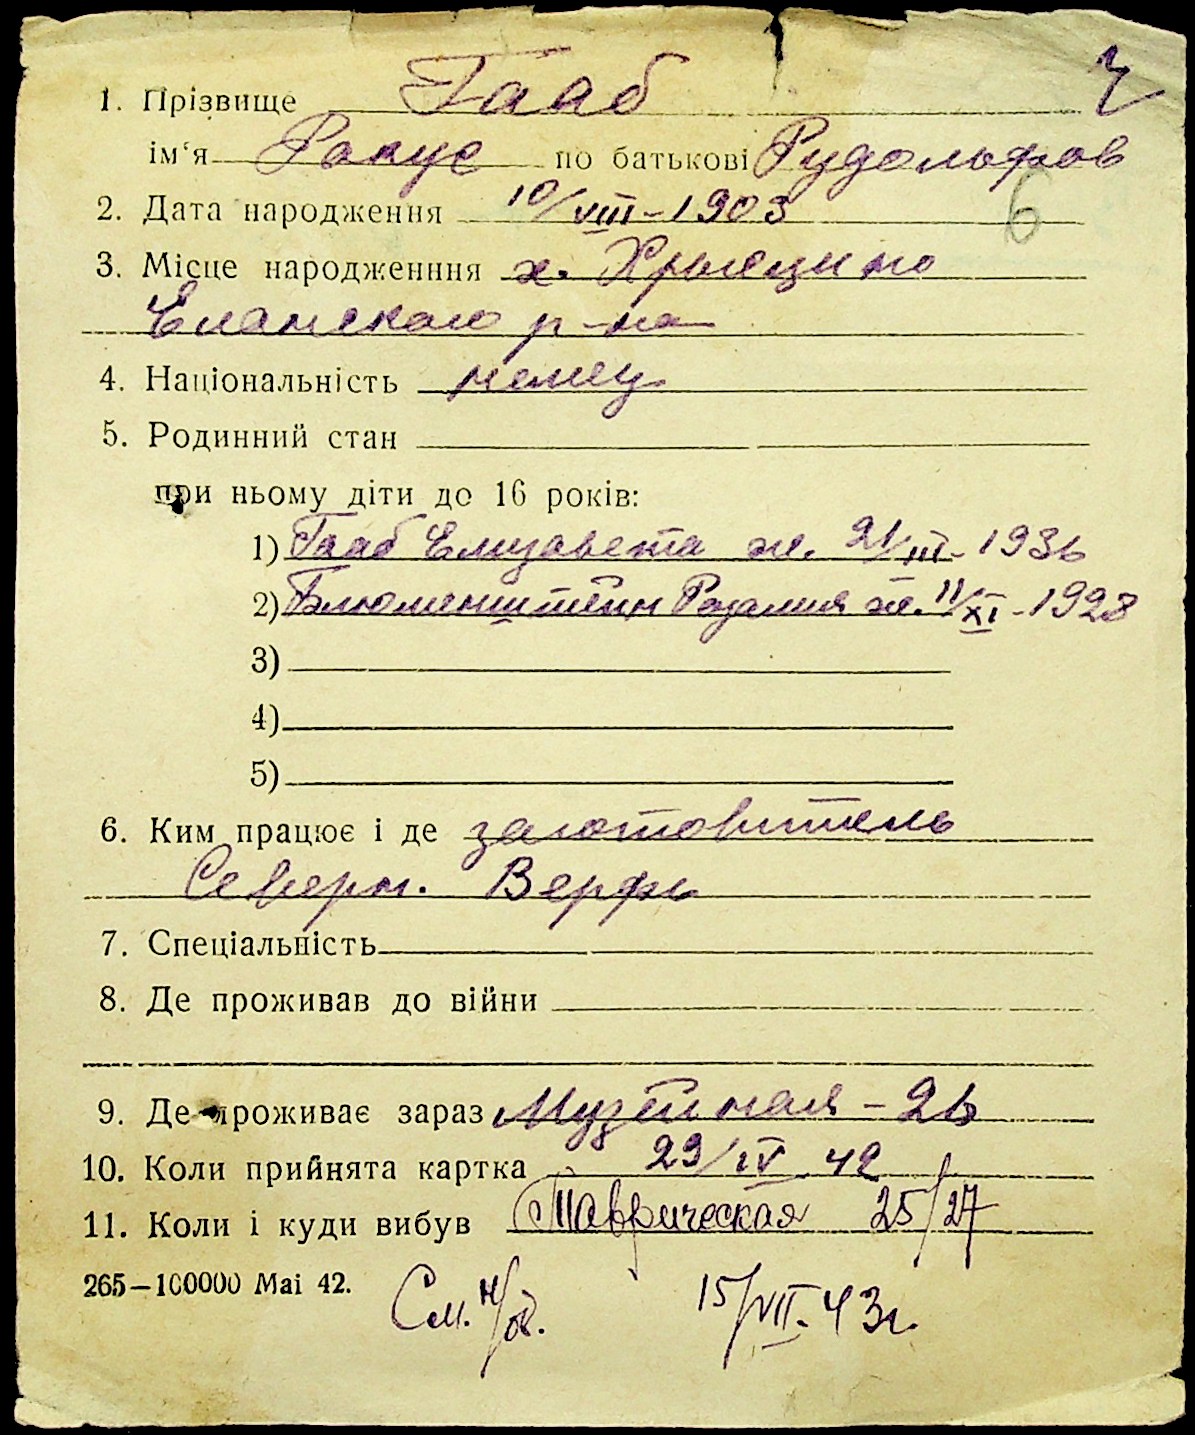 1. Прізвище Гааб Ч
ім‘я по батькові Рудольфов
2. Дата народження 10/VIII–1903
6
3. Місце народженння х.
Еланского р-на
4. Національність немец
5. Родинний стан
при ньому діти до 16 років:
1) Гааб Елизавета ж. 21/III-1936
2) Блюменштейн Розалия ж. 11/XI-1928
3)
4)
5)
6. Ким працює і де заготовитель
Северн. Верфь
7. Спеціальність
8. Де проживав до війни
9. Де проживає зараз Музейная – 26
10. Коли прийнята картка 29/IV 42
11. Коли і куди вибув Таврическая 25/27
265—100000 Mai 42. См. н/об. 15/VII-43г.